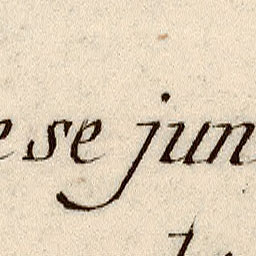 e se jun